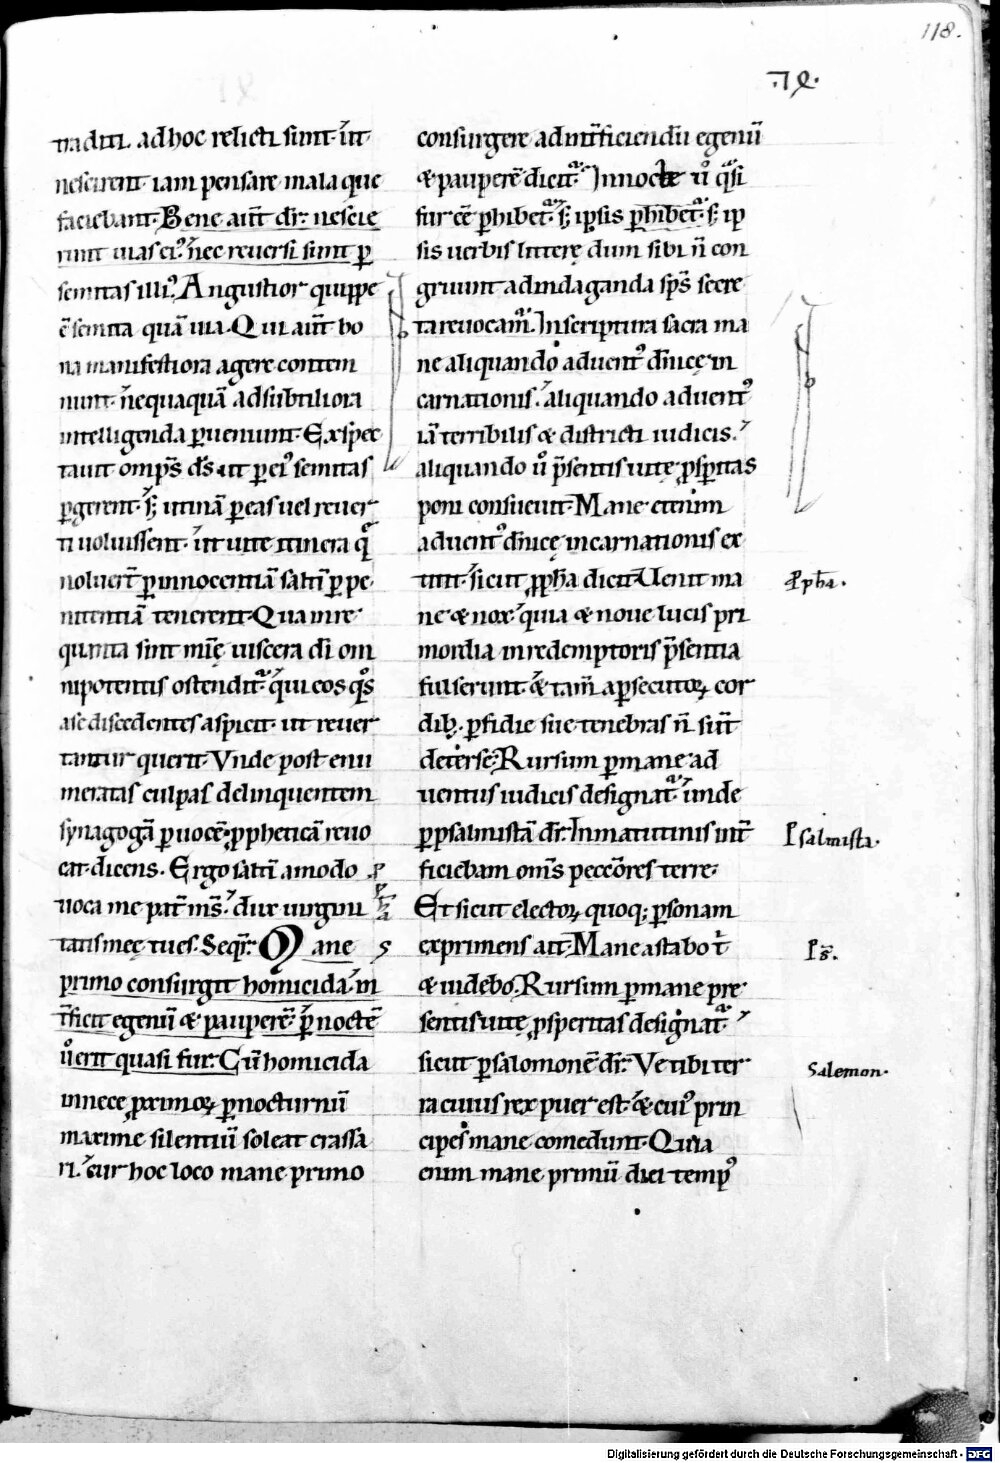 118.
traditi. ad hoc relicti sunt. ut̄
nescirent iam pensare mala que
faciebant. Bene aut̄ dr̄. nescie
runt uias ei᷒. nec reuersi sunt p̄
semitas illi᷒. Angustior quippe
ē semita quā uia. Qui aut̄ bo
na manifestiora agere contem
nunt. nequaquā ad subtiliora
intelligenda ꝑueniunt. Exspec
tauit omp̄s d̄s ut ꝑ ei᷒ semitas
ꝑgerent. sꝫ utinā ꝑ eas uel reuer
ti uoluissent. ut uite itinera q̄
noluer̄t ꝑ innocentiā saltī ꝑ pe
nitentiā tenerent. Qua in re
quanta sint mīę uiscera dī om
nipotentis ostendit᷑. qui eos q̊s
a se discedentes aspicit. ut reuer
tantur querit. Vnde post enu
meratas culpas delinquentem
synagogā ꝑ uocē ꝓpheticā reuo
cat. dicens. Ergo saltī amodo
uoca me pat̄ ms̄. dux uirgini
tatis meę tu es. Seqr̄. Mane
primo consurgit homicida. in
t̄ficit egenū & pauperē. ꝑ noctē
ů erit quasi fur. Cū homicida
in nece ꝓximoꝝ ꝑ nocturnū
maxime silentiū soleat crassa
ri. cur hoc loco mane primo
consurgere ad int̄ficiendū egenū
& pauperē dicit᷑. In nocte ů q̄si
fur ēē ꝑhibet᷑. sꝫ ipsis ꝑhibet᷑. sꝫ ip
sis uerbis litterę dum sibi n̄ con
gruunt ad indaganda sp̄s secre
ta reuocam᷒. In scriptura sacra ma
ne aliquando aduent᷒ dn̄icę in
carnationis. aliquando aduent᷒
iā terribilis & districti iudicis.
aliquando ů p̄sentis uitę ꝓsꝑitas
poni consueuit. Mane etenim
aduent᷒ dn̄icę incarnationis ex
titit. sicut ꝓpha dicit. Uenit ma
ne & nox. quia & noue lucis pri
mordia in redemptoris p̄sentia
fulserunt. & tam̄ a ꝑsecutoꝝ cor
dibꝫ. ꝑfidie sue tenebras n̄ sunt̄
deterse. Rursum ꝑ mane ad
uentus iudicis designat᷑. unde
ꝑ psalmistā dr̄. In matutinis int̄
ficiebam om̄s peccōres terre.
Et sicut electoꝝ quoqꝫ ꝑsonam
exprimens ait. Mane astabo t̄
& uidebo. Rursum ꝑ mane pre
sentis uitę ꝓsperitas designat᷑.
sicut ꝑ salomonē dr̄. Ve tibi ter
ra cuius rex puer est. & cui᷒ prin
cipes mane comedunt. Quia
enim mane primū diei temp᷒
ꝓph̄a.
Psalmista.
Ps̄.
Salemon.
Digitalisierung gefördert durch die Deutsche Forschungsgemeinschaft - DFG